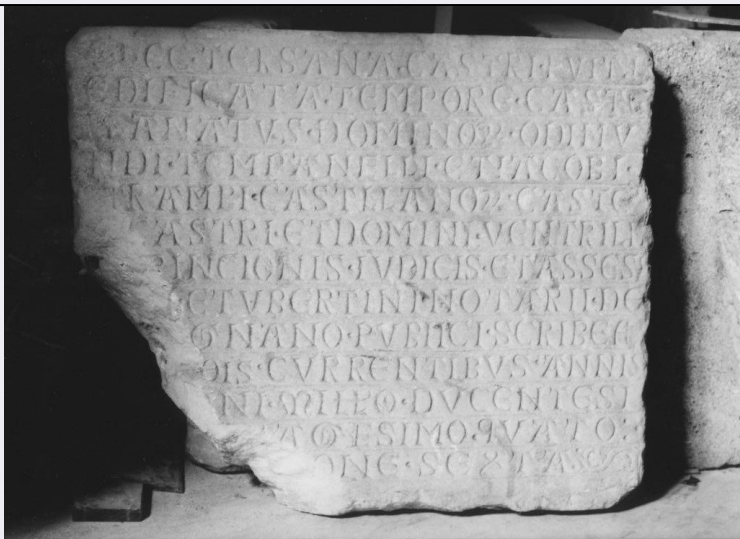 HEC·TERSANA·CASTRI·FUIT
EDIFICATA·TEMPORE·CASTE
LANATVS·DOMINOꝜ·ODIMV
NDI·TEMPANELLI·ETIACOBI·
TRAMPI·CASTELANOꝜ·CASTE
CASTRI·ET DOMINI·VENTRILII
PINCIONIS·IVDICIS·ETASSES
ETUBERTINI NOTARII·DE
GNANO·PVBLICI·SCRIBEE
CVRRENTIBVS·ANNIS
NI·MILLO·DUCENTESI
AGESIMO·QVATO
ONE·SEXTA